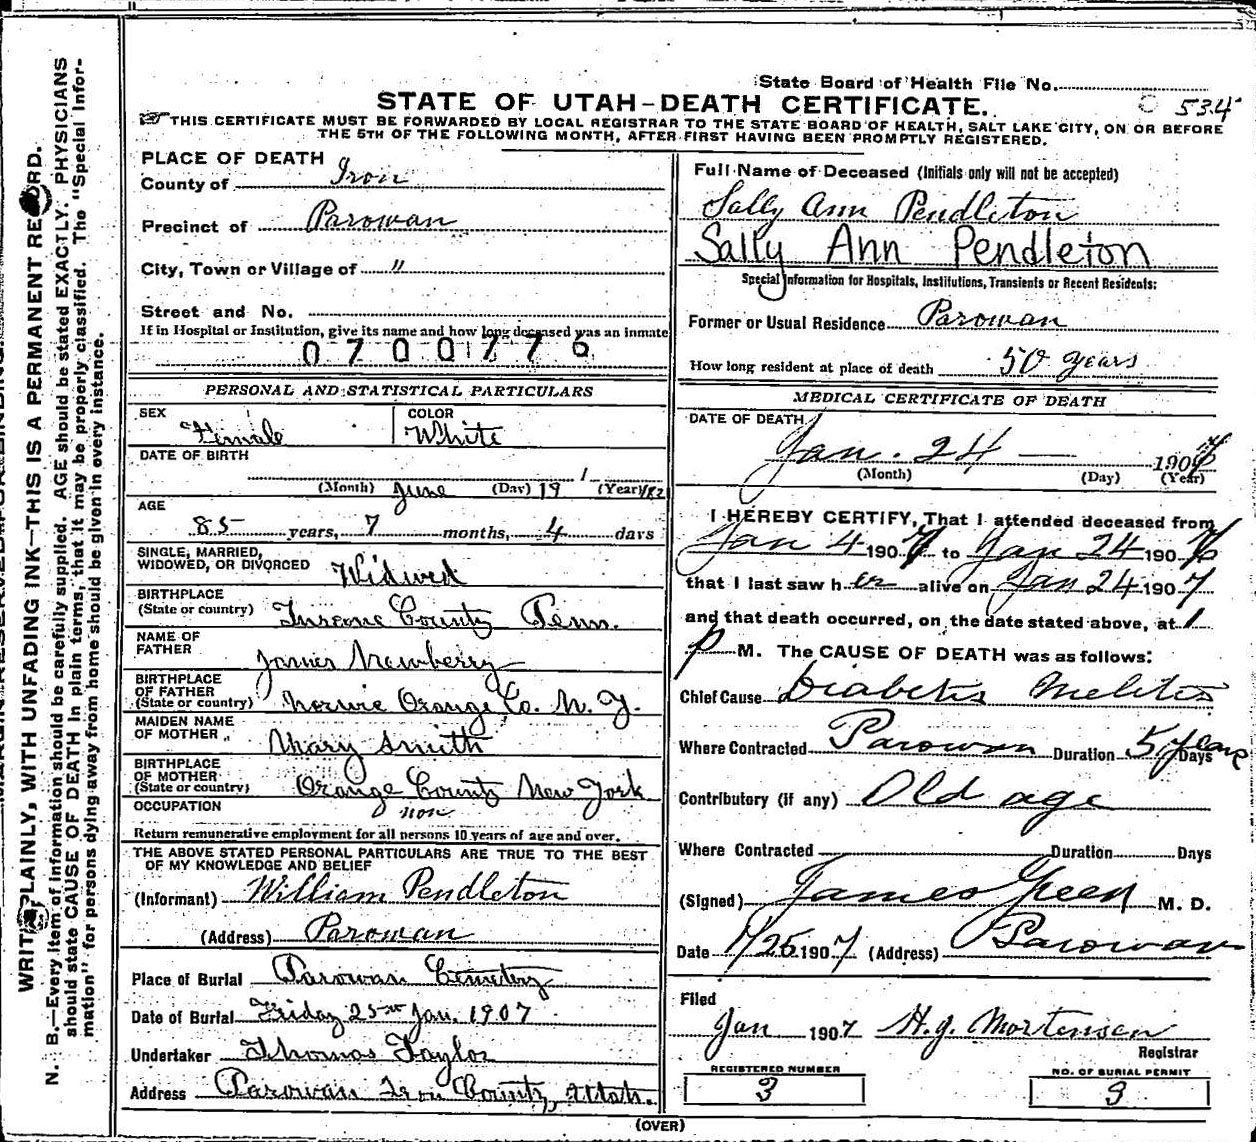 State Board of Health File No.
C 534
STATE OF UTAH-DEATH CERTIFICATE.
THIS CERTIFICATE MUST BE FORWARDED BY LOCAL REGISTRAR TO THE STATE BOARD OF HEALTH, SALT LAKE CITY, ON OR BEFORE
THE 5TH OF THE FOLLOWING MONTH, AFTER FIRST HAVING BEEN PROMPTLY REGISTERED.
WRITE PLAINLY, WITH UNFADING INK—THIS IS A PERMANENT RECORD.
N. B.—Every item of information should be carefully supplied. AGE should be stated EXACTLY. PHYSICIANS
should state CAUSE OF DEATH in plain terms, that it may be properly classified. The "Special Infor-
mation" for persons dying away from home should be given in every instance.
PLACE OF DEATH
County of Iron
Precinct of Parowan
City, Town or Village of "
Street and No.
If in Hospital or Institution, give its name and how long deceased was an inmate
0700776
PERSONAL AND STATISTICAL PARTICULARS
SEX Female
COLOR White
DATE OF BIRTH
(Month) June (Day) 19 (Year)
AGE
85 years, 7 months, 4 days
SINGLE, MARRIED,
WIDOWED, OR DIVORCED Widwed
BIRTHPLACE
(State or country) County Penn.
NAME OF
FATHER James Newberry
BIRTHPLACE
OF FATHER
(State or country) Orange Co. N. Y.
MAIDEN NAME
OF MOTHER Mary Smith
BIRTHPLACE
OF MOTHER
(State or country) Orange County New York
OCCUPATION non
Return remunerative employment for all persons 10 years of age and over.
THE ABOVE STATED PERSONAL PARTICULARS ARE TRUE TO THE BEST
OF MY KNOWLEDGE AND BELIEF
(Informant) William Pendleton
(Address) Parowan
Place of Burial Parowan Cemetery
Date of Burial Friday 25 Jan. 1907
Undertaker Thomas Taylor
Address Parowan Iron County, Utah.
Full Name of Deceased (Initials only will not be accepted)
Sally Ann Pendleton
Sally Ann Pendleton
Special Information for Hospitals, Institutions, Transients or Recent Residents:
Former or Usual Residence Parowan
How long resident at place of death 50 years
MEDICAL CERTIFICATE OF DEATH
DATE OF DEATH
Jan. 24 — 1907
(Month) (Day) (Year)
I HEREBY CERTIFY, That I attended deceased from
Jan 4 1907 to Jan 24 1907
that I last saw her alive on Jan 24 1907
and that death occurred, on the date stated above, at 1
P M. The CAUSE OF DEATH was as follows:
Chief Cause Diabetis Melitis
Where Contracted Parowan Duration 5 years Days
Contributory (if any) Old age
Where Contracted Duration Days
(Signed) James Green M. D.
Date 1/25 1907 (Address) Parowan
Filed
Jan 1907 H. J. Mortensen
Registrar
REGISTERED NUMBER
3
NO. OF BURIAL PERMIT
3
(OVER)